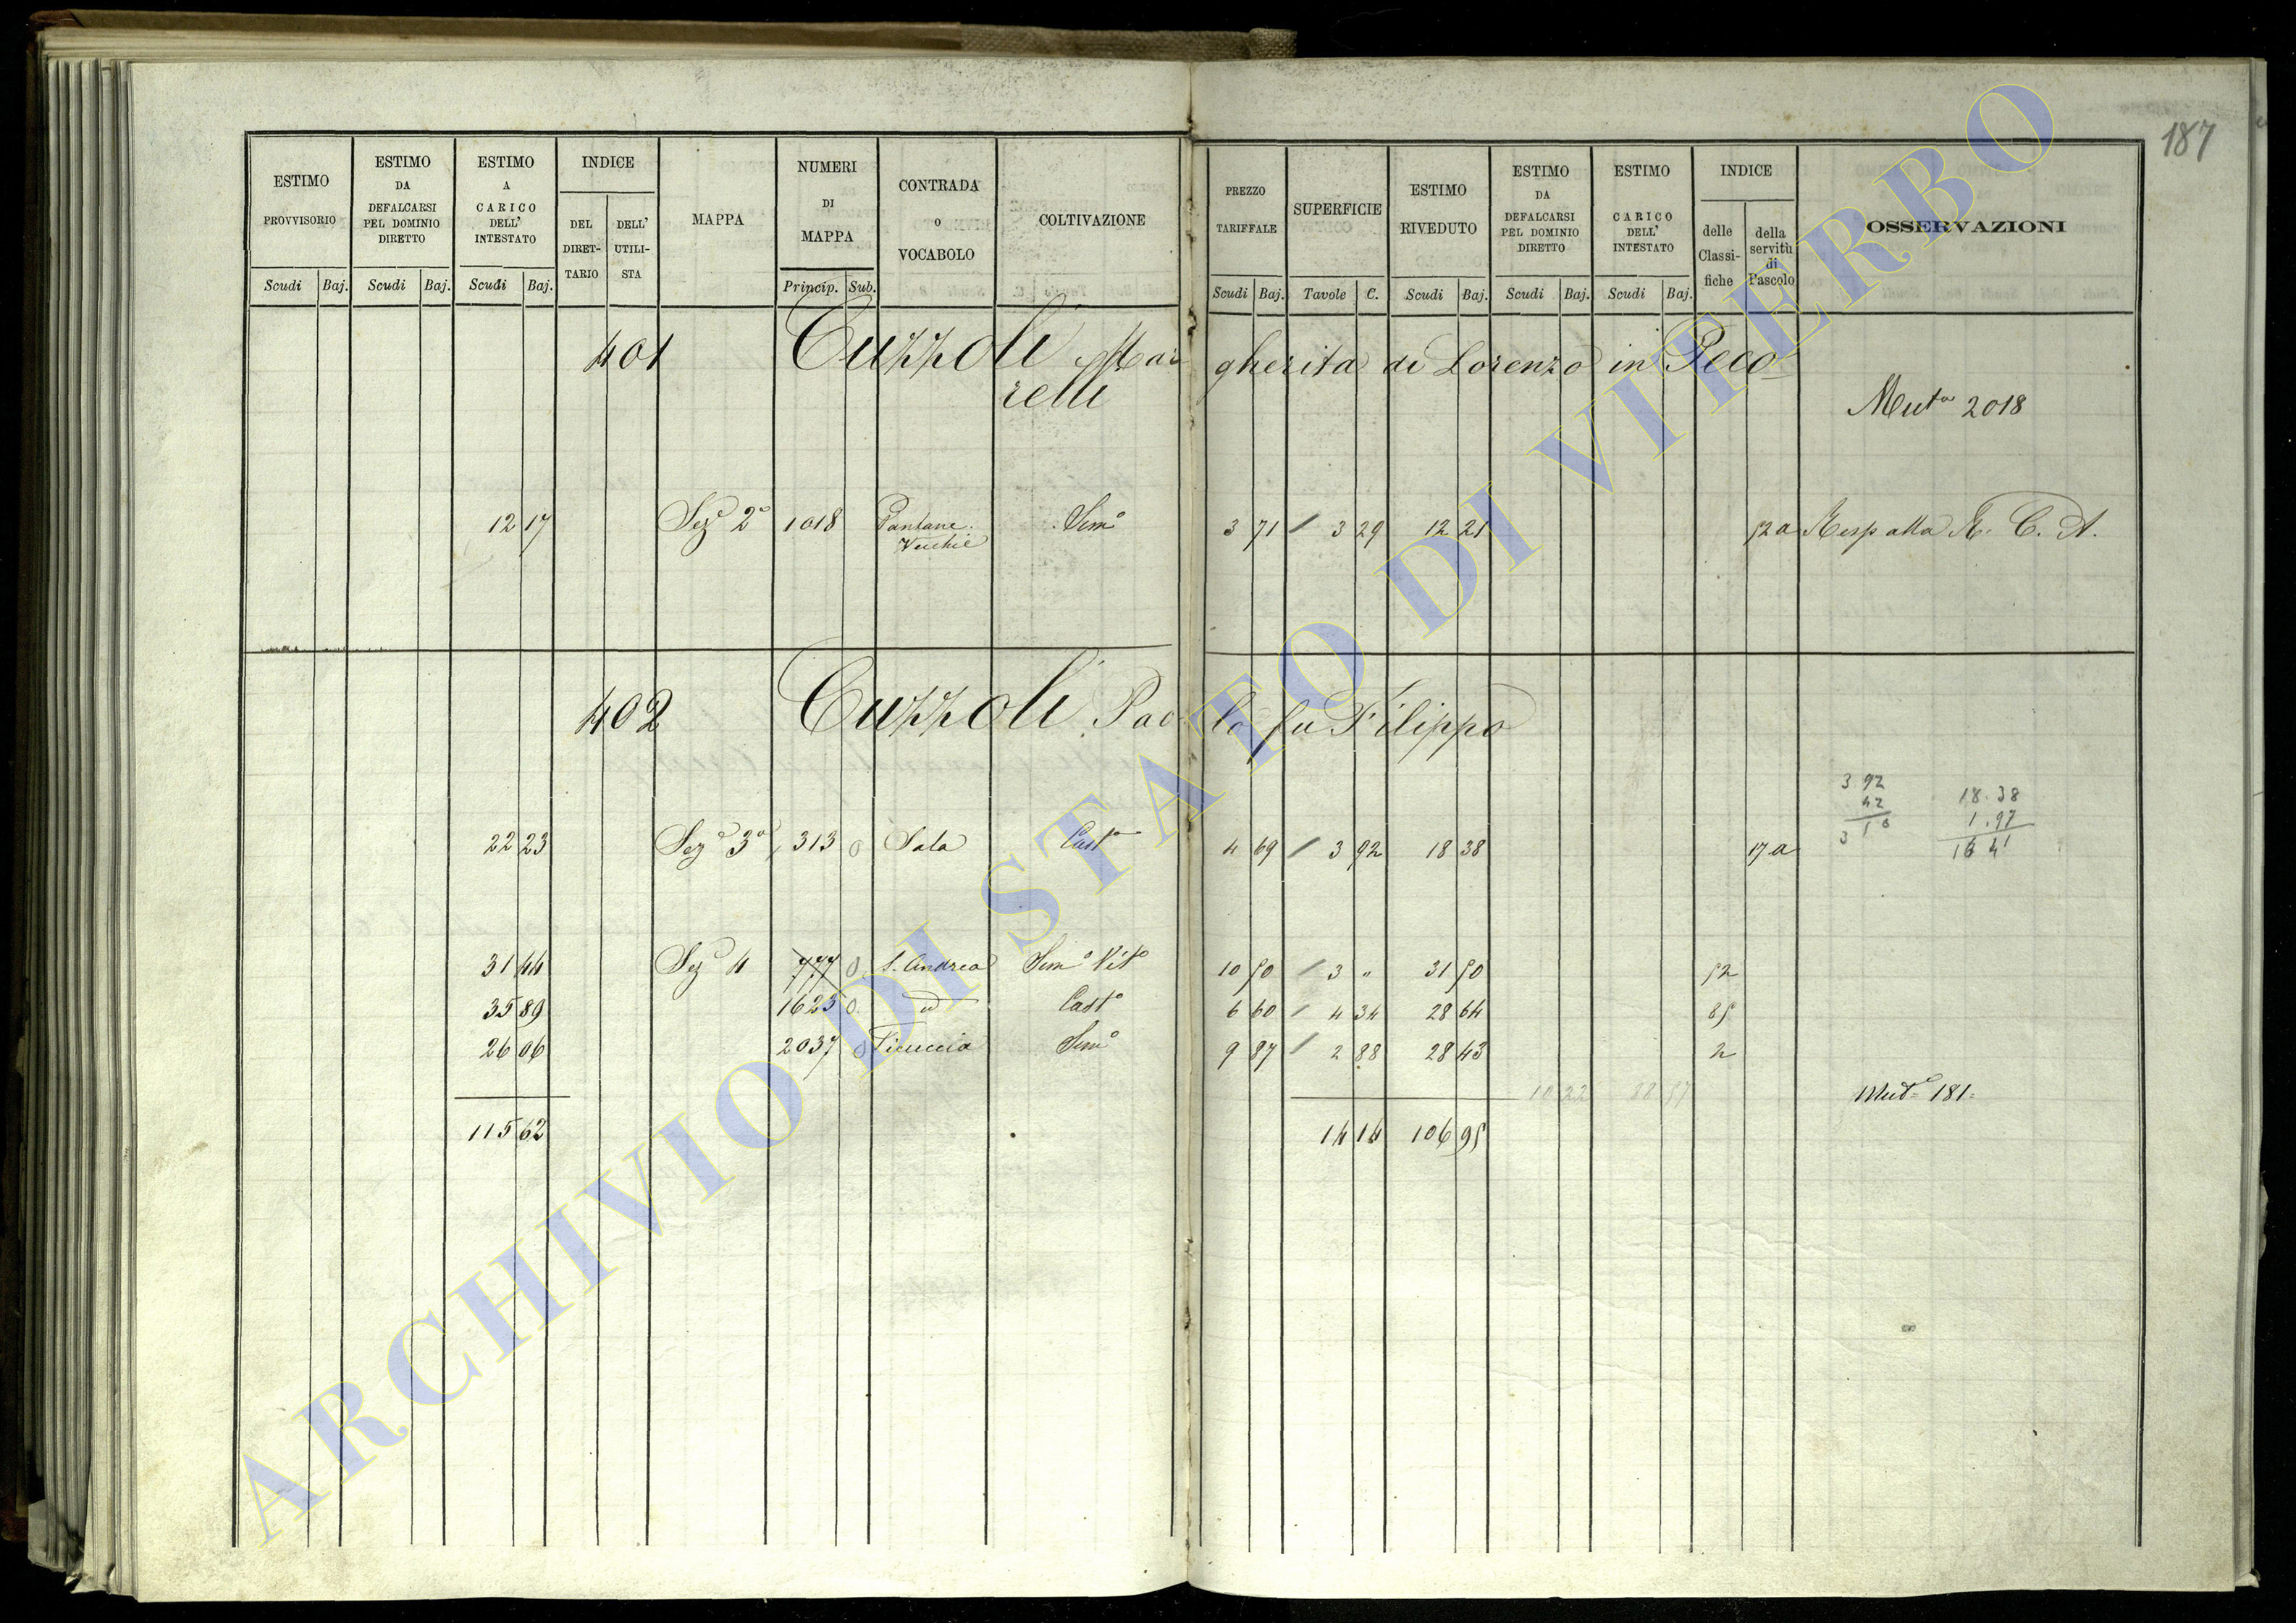 187
ESTIMO PROVVISORIO
ESTIMO DA DEFALCARSI PEL DOMINIO DIRETTO
ESTIMO A CARICO DELL' INTESTATO
INDICE
DEL DIRET-TARIO
DELL' UTILI-STA
MAPPA
NUMERI DI MAPPA
CONTRADA o VOCABOLO
COLTIVAZIONE
PREZZO TARIFFALE
SUPERFICIE
ESTIMO RIVEDUTO
ESTIMO DA DEFALCARSI PEL DOMINIO DIRETTO
ESTIMO CARICO DELL' INTESTATO
INDICE
delle Classi-fiche
della servitù di Pascolo
OSSERVAZIONI
Scudi Baj. Scudi Baj. Scudi Baj. Princip. Sub. Scudi Baj. Tavole C. Scudi Baj. Scudi Baj. Scudi Baj.
401 Cuzzoli Mar gherita di Lorenzo in Peco
relli
Muta 2018
12 17 Seze 2a 1018 Pantane Vecchie Semo 3 71 / 3 29 12 21 52 a Resp alla R. C. A.
402 Cuzzoli Pao lo fu Filippo
3 92 18.38
42 1.97
3 10 16 41
22 23 Seze 3a 313 0 Sala Casto 4 69 / 3 92 18 38 17 a
31 44 Seze 4 777 0 S. Andrea Semo Vito 10 50 / 3 " 31 50 52
35 89 1625 0 d Casto 6 60 / 4 34 28 64 85
26 06 2037 0 Ficuccia Semo 9 87 / 2 88 28 43 2
10 22 88 57
Muta 181
115 62 14 14 106 95
ARCHIVIO DI STATO DI VITERBO